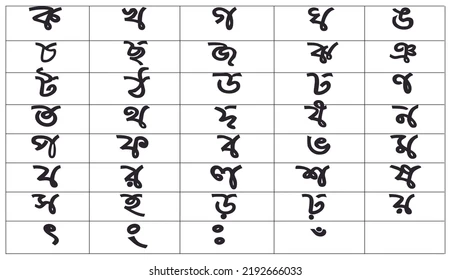 ক খ গ ঘ ঙ
চ ছ জ ঝ ঞ
ট ঠ ড ঢ ণ
ত থ দ ধ ন
প ফ ব ভ ম
য র ল শ ষ
স হ ড় ঢ় য়
ৎ ং ঃ ঁ
shutterstock.com · 2192666033